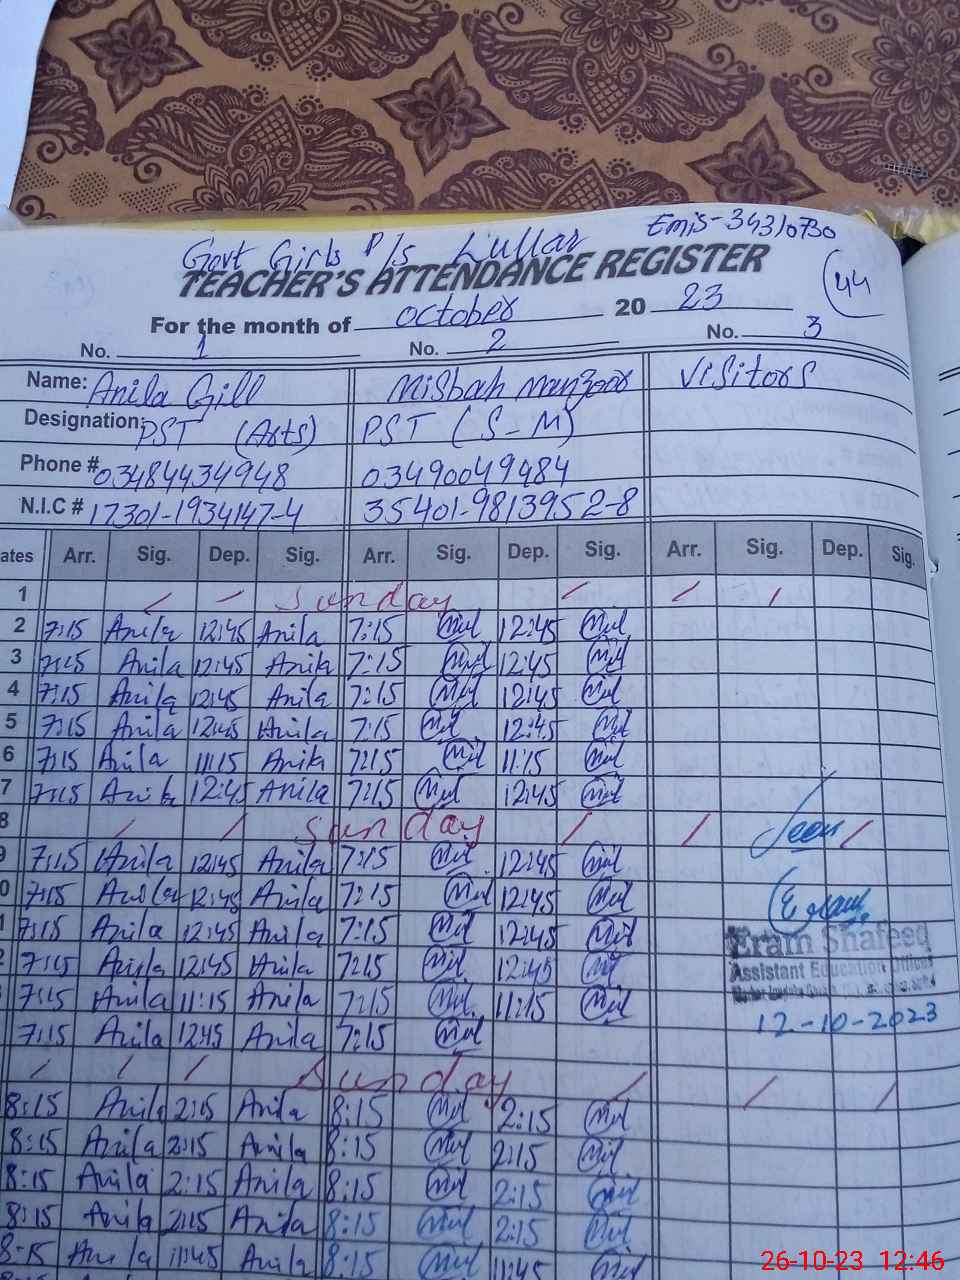 Emis-34310730
Govt Girls P/s Lullar
TEACHER'S ATTENDANCE REGISTER
44
For the month of October 20 23
No. 1 No. 2 No. 3
Name: Anila Gill Misbah Manzoor Visitors
Designation: PST (Arts) PST (S-M)
Phone # 03484434948 03490049484
N.I.C # 17301-1934147-4 35401-9813952-8
ates Arr. Sig. Dep. Sig. Arr. Sig. Dep. Sig. Arr. Sig. Dep. Sig.
1 Sunday
2 7:15 Anila 12:45 Anila 7:15 12:45
3 7:15 Anila 12:45 Anila 7:15 12:45
4 7:15 Anila 12:45 Anila 7:15 12:45
5 7:15 Anila 12:45 Anila 7:15 12:45
6 7:15 Anila 11:15 Anila 7:15 11:15
7 7:15 Anila 12:45 Anila 7:15 12:45
8 Sunday Seen
9 7:15 Anila 12:45 Anila 7:15 12:45
0 7:15 Anila 12:45 Anila 7:15 12:45
1 7:15 Anila 12:45 Anila 7:15 12:45
2 7:15 Anila 12:45 Anila 7:15 12:45
Eram Shafeeq
Assistant Education Officer
7:15 Anila 11:15 Anila 7:15 11:15
12-10-2023
7:15 Anila 12:45 Anila 7:15
Sunday
8:15 Anila 2:15 Anila 8:15 2:15
8:15 Anila 2:15 Anila 8:15 2:15
8:15 Anila 2:15 Anila 8:15 2:15
8:15 Anila 2:15 Anila 8:15 2:15
8:15 Anila 11:45 Anila 8:15 11:45
26-10-23 12:46